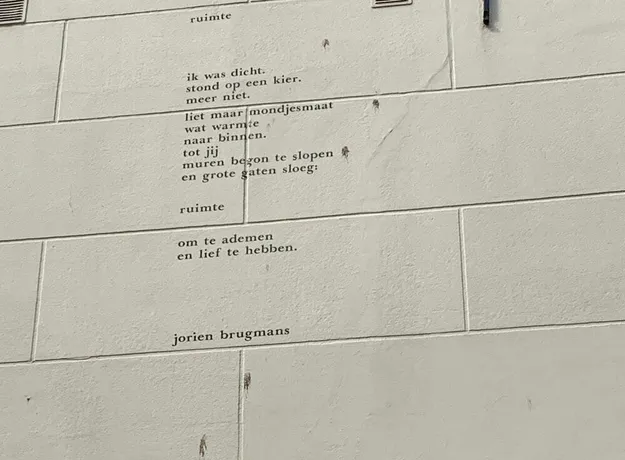 ruimte
ik was dicht.
stond op een kier.
meer niet.
liet maar mondjesmaat
wat warmte
naar binnen.
tot jij
muren begon te slopen
en grote gaten sloeg:
ruimte
om te ademen
en lief te hebben.
jorien brugmans